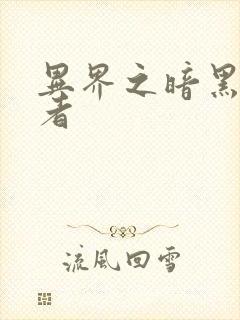 異界之暗黑
者
流風回雪